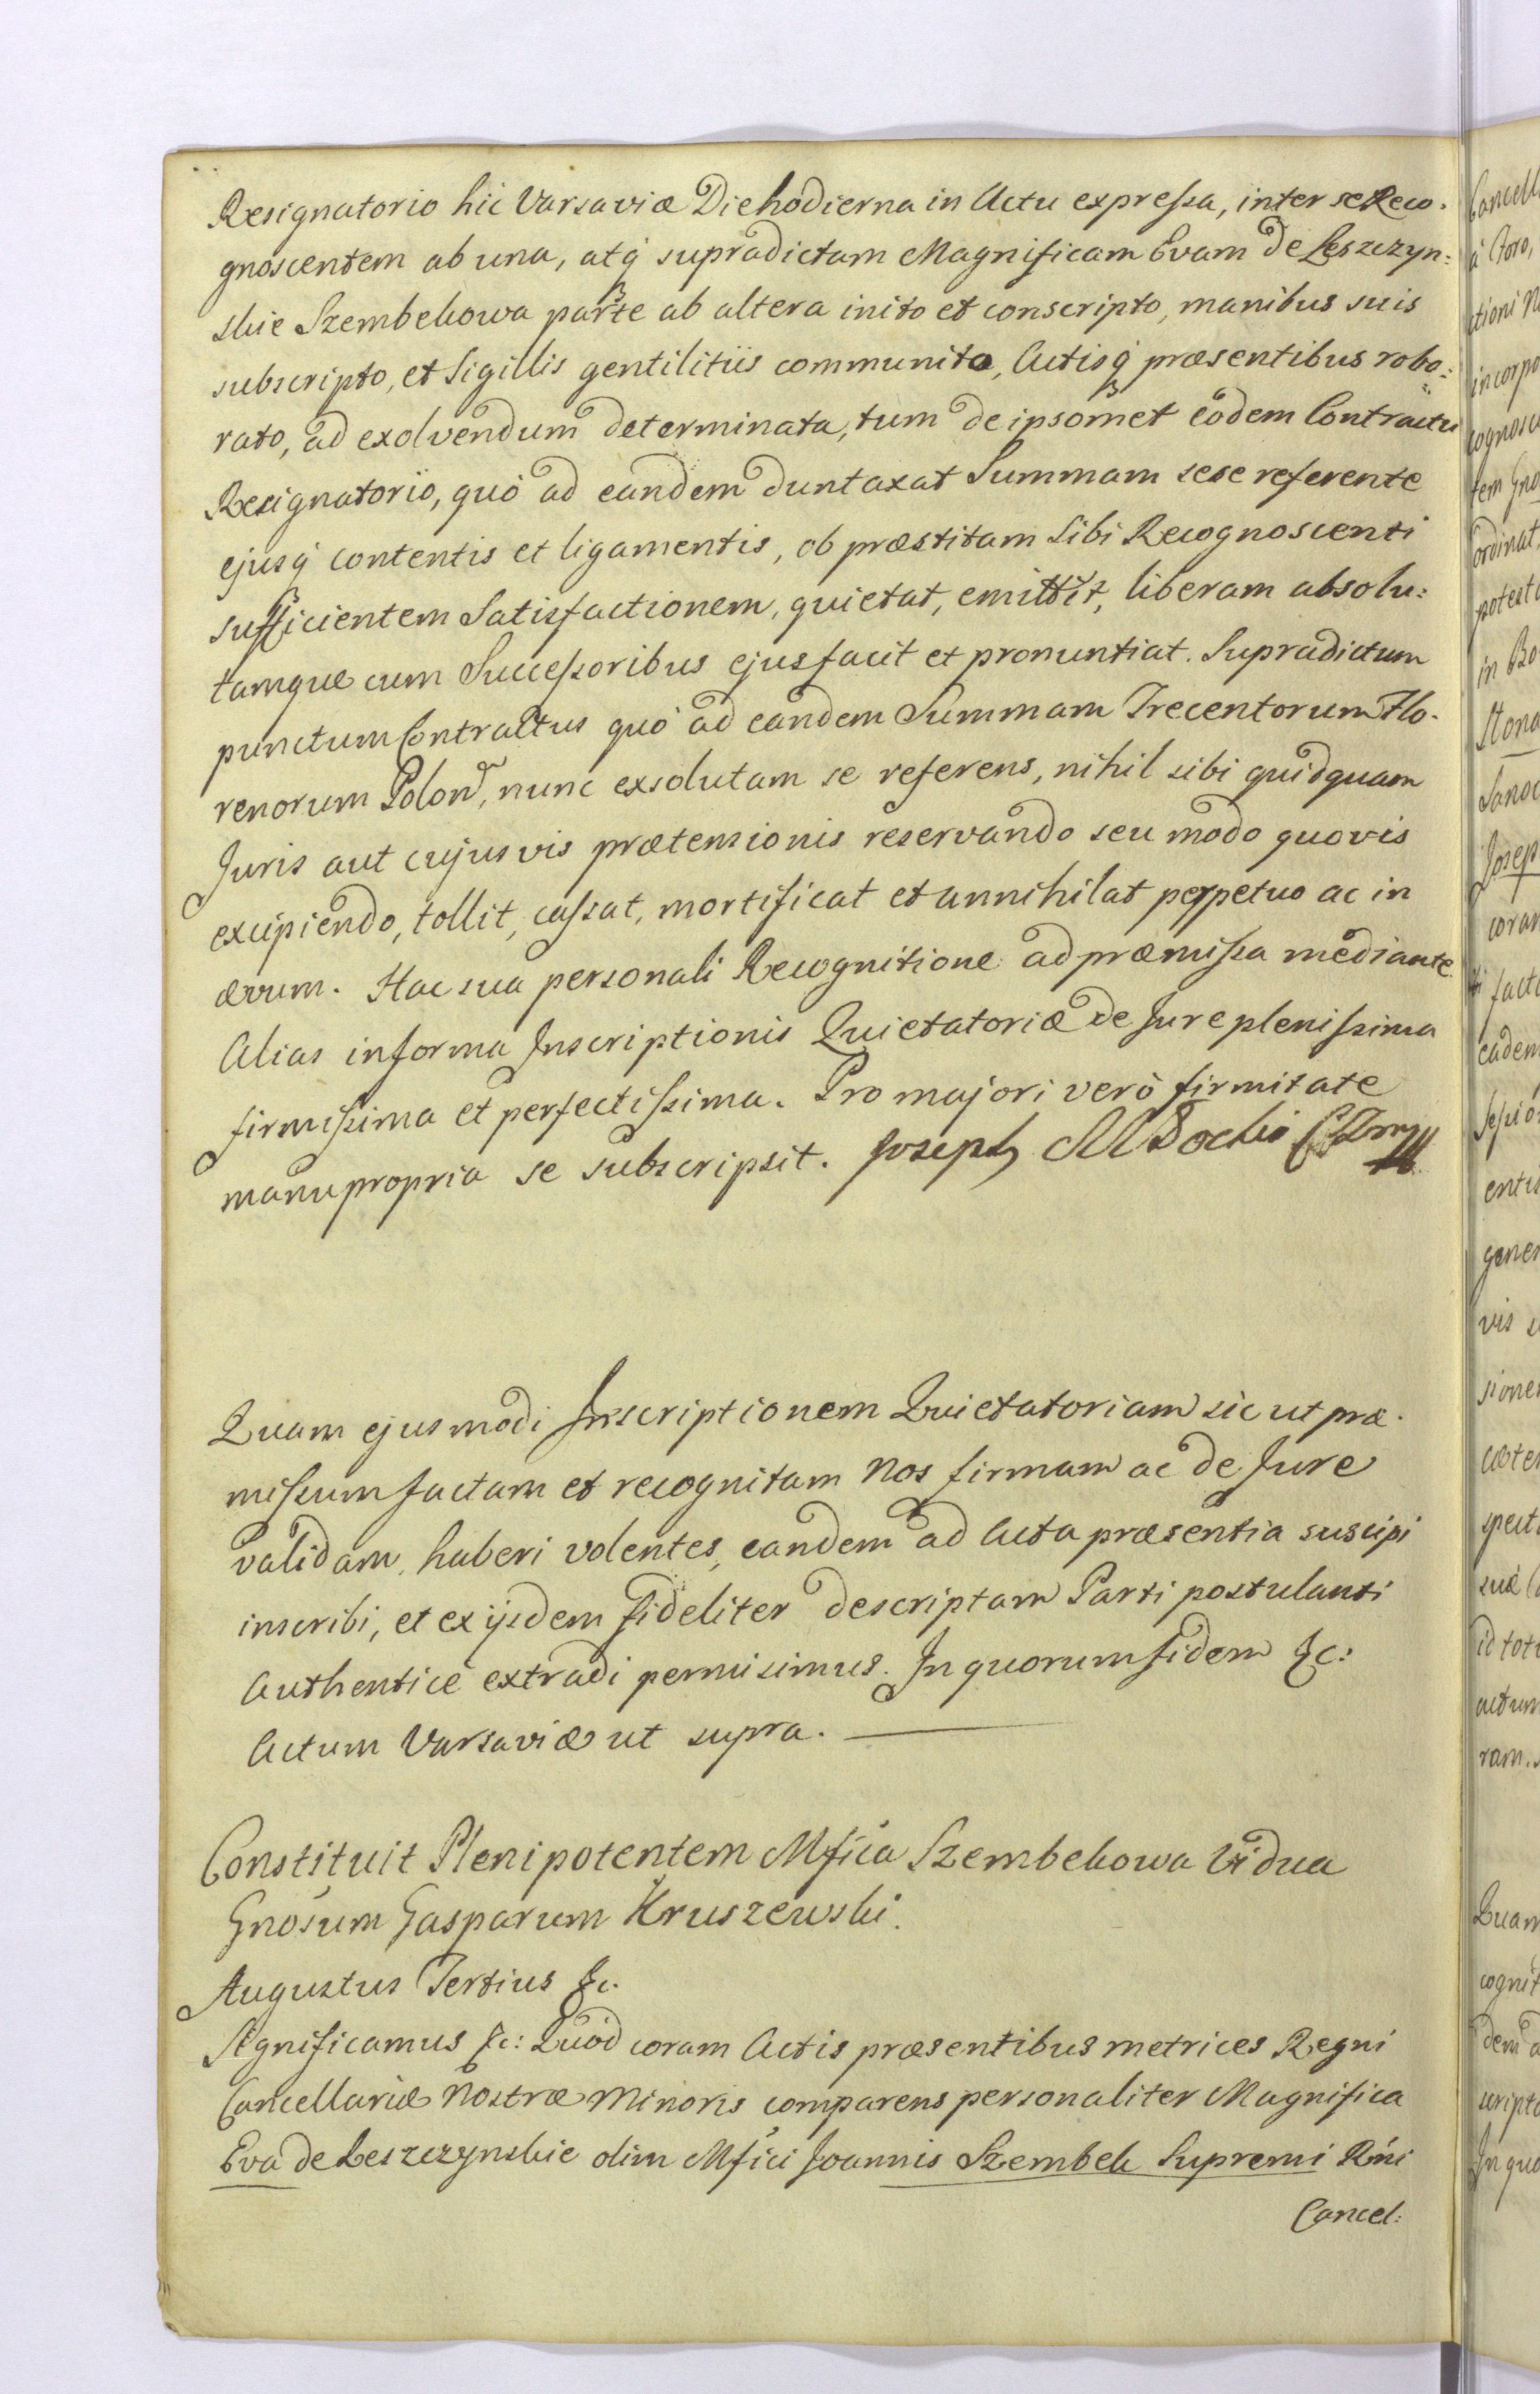 Resignatorio hic Varsaviæ Die hodierna in Actu expressa, inter se Reco-
gnoscentem ab una, atq supradictam Magnificam Evam de Leszczyn:
skie Szembekowa parte ab altera inito et conscripto, manibus suis
subscripto, et Sigillis gentilitiis communito, Actisq præsentibus robo:
rato, ad exolvendum determinata, tum de ipsomet eodem Contractu
Resignatorio, quò ad eandem duntaxat Summam sese referente
ejusq contentis et ligamentis, ob præstitam Sibi Recognoscenti
sufficientem Satisfactionem, quietat, emittit, liberam absolu:
tamque cum Successoribus ejus facit et pronuntiat. Supradictum
punctum Contractus quò ad eandem Summam Trecentorum Flo-
renorum Polon, nunc exsolutam se referens, nihil sibi quidquam
Juris aut cujusvis prætensionis reservando seu modo quovis
excipiendo, tollit, cassat, mortificat et annihilat perpetuo ac in
ævum. Hac sua personali Recognitione ad præmissa mediante
Alias in forma Inscriptionis Quietatoriæ de Jure plenissima
firmissima et perfectissima. Pro majori verò firmitate
manu propria se subscripsit. Joseph
Quam ejusmodi Inscriptionem Quietatoriam sic ut præ-
missum factam et recognitam Nos firmam ac de Jure
validam, haberi volentes, eandem ad Acta præsentia suscipi
inscribi, et ex ijsdem fideliter descriptam Parti postulanti
Authenticè extradi permisimus. In quorum fidem &c:
Actum Varsaviæ ut supra.
Constituit Plenipotentem Mfica Szembekowa Vidua
Gnosum Gasparum Kruszewski.
Augustus Tertius &c.
Significamus &c: Quòd coram Actis præsentibus metrices Regni
Cancellariæ Nostræ Minoris comparens personaliter Magnifica
Eva de Leszczynskie olim Mfici Joannis Szembek Supremi Rni
Cancel: